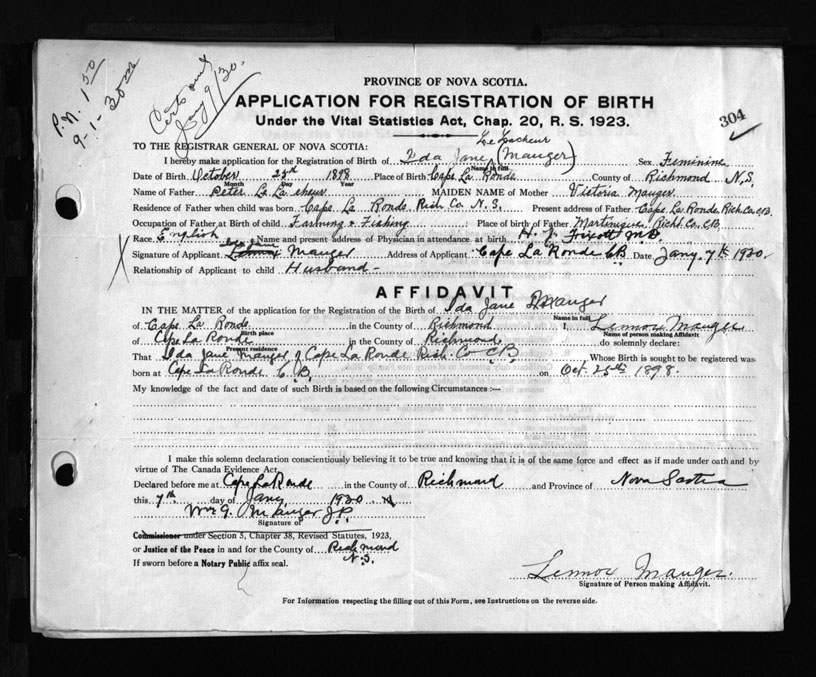 P.N. 1 50
9-1-30
Jany 9/30.
PROVINCE OF NOVA SCOTIA.
APPLICATION FOR REGISTRATION OF BIRTH
304
Under the Vital Statistics Act, Chap. 20, R. S. 1923.
TO THE REGISTRAR GENERAL OF NOVA SCOTIA:
Le Lacheur
I hereby make application for the Registration of Birth of Ida Jane (Mauger) Sex Feminine
Name in full
Date of Birth October 25th 1898 Place of Birth Cape La Ronde County of Richmond N.S.
Month Day Year
Name of Father Peter La La cheur MAIDEN NAME of Mother Victoria Mauger
Residence of Father when child was born Cape La Ronde Rich Co N.S. Present address of Father Cape La Ronde, Rich Co. C.B.
Occupation of Father at Birth of child Farming & Fishing Place of birth of Father Martinique, Rich. Co. C.B.
Race English Name and present address of Physician in attendance at birth H. J. Fixott M.D.
Ida Jane
Signature of Applicant Lennox Mauger Address of Applicant Cape La Ronde C.B. Date Jany. 7th 1930.
Relationship of Applicant to child Husband -
AFFIDAVIT
IN THE MATTER of the application for the Registration of the Birth of Ida Jane Mauger
Name in full
of Cape La Ronde in the County of Richmond I, Lennox Mauger
Birth place Name of person making Affidavit
of Cape La Ronde in the County of Richmond do solemnly declare:
Present residence
That Ida Jane Mauger of Cape La Ronde Rich. Co C.B. Whose Birth is sought to be registered was
born at Cape La Ronde C.B. on Oct. 25th 1898.
My knowledge of the fact and date of such Birth is based on the following Circumstances :—
I make this solemn declaration conscientiously believing it to be true and knowing that it is of the same force and effect as if made under oath and by
virtue of The Canada Evidence Act.
Declared before me at Cape La Ronde in the County of Richmond and Province of Nova Scotia
this 7th day of Jany 1930
Wm G. Mauger J.P.
Signature of
Commissioner under Section 5, Chapter 38, Revised Statutes, 1923,
or Justice of the Peace in and for the County of Richmond
N.S.
If sworn before a Notary Public affix seal.
Lennox Mauger.
Signature of Person making Affidavit.
For Information respecting the filling out of this Form, see Instructions on the reverse side.